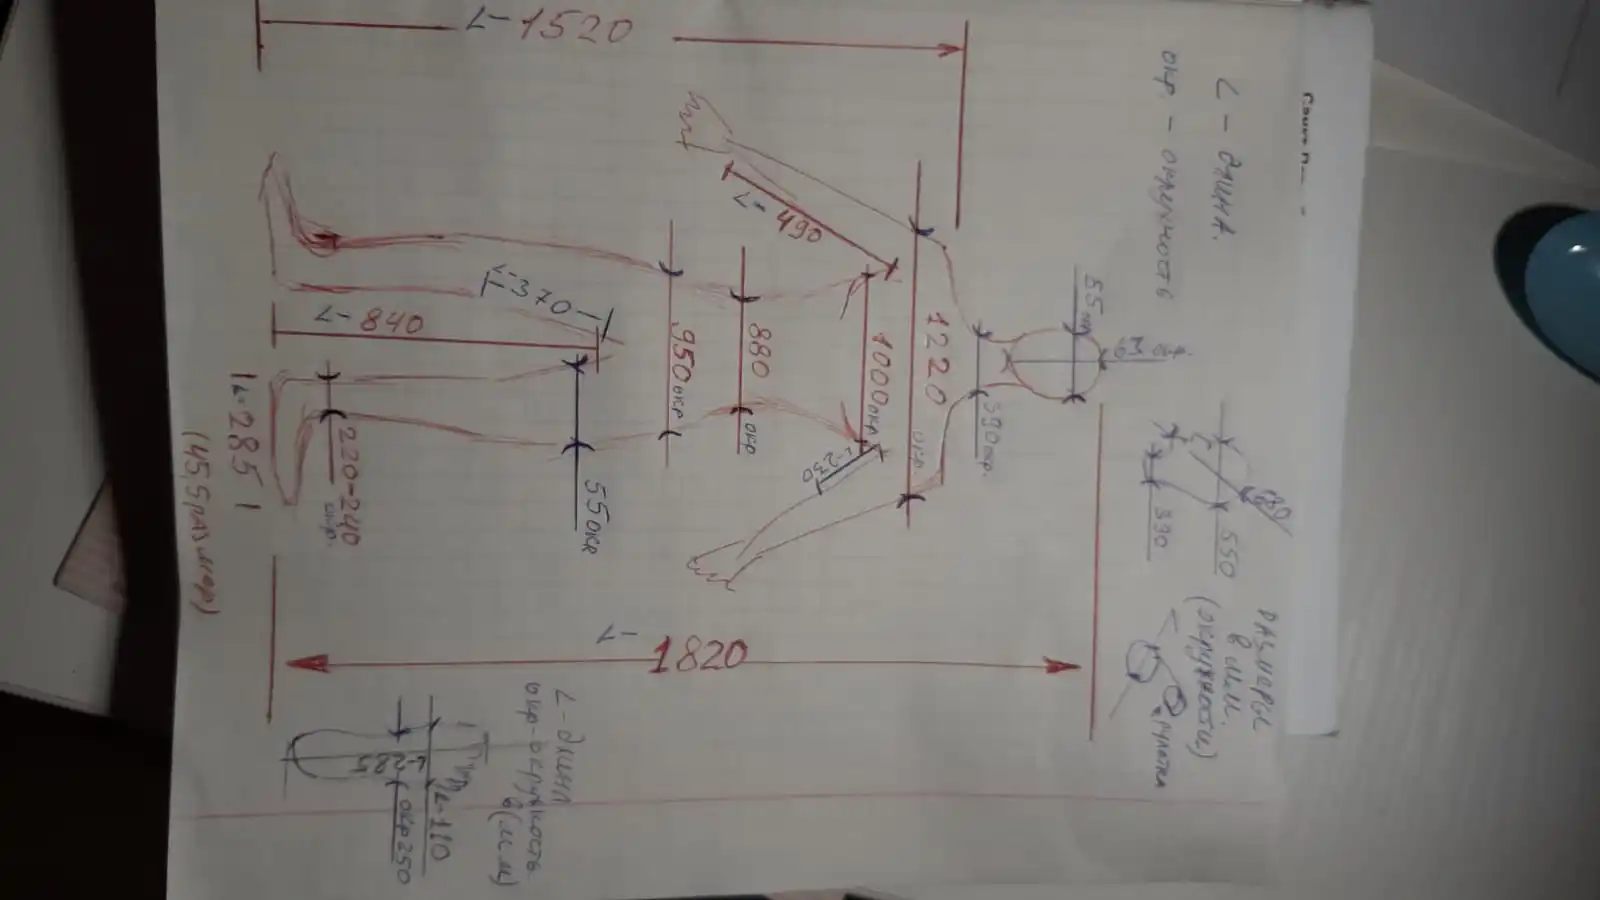 L - длина.
окр. - окружность
РАЗМЕРЫ
в мм.
(окружности)
рулетка
550
390
55 окр
390 окр.
L- 1520
1220
окр.
L- 490
1000 окр
L-230
880
окр
950 окр
L-370
L- 840
55 окр
220-240
окр.
L-285
(45,5 размер)
L- 1820
L-длина
окр-окружность
в (мм)
L-110
L-285
окр 250